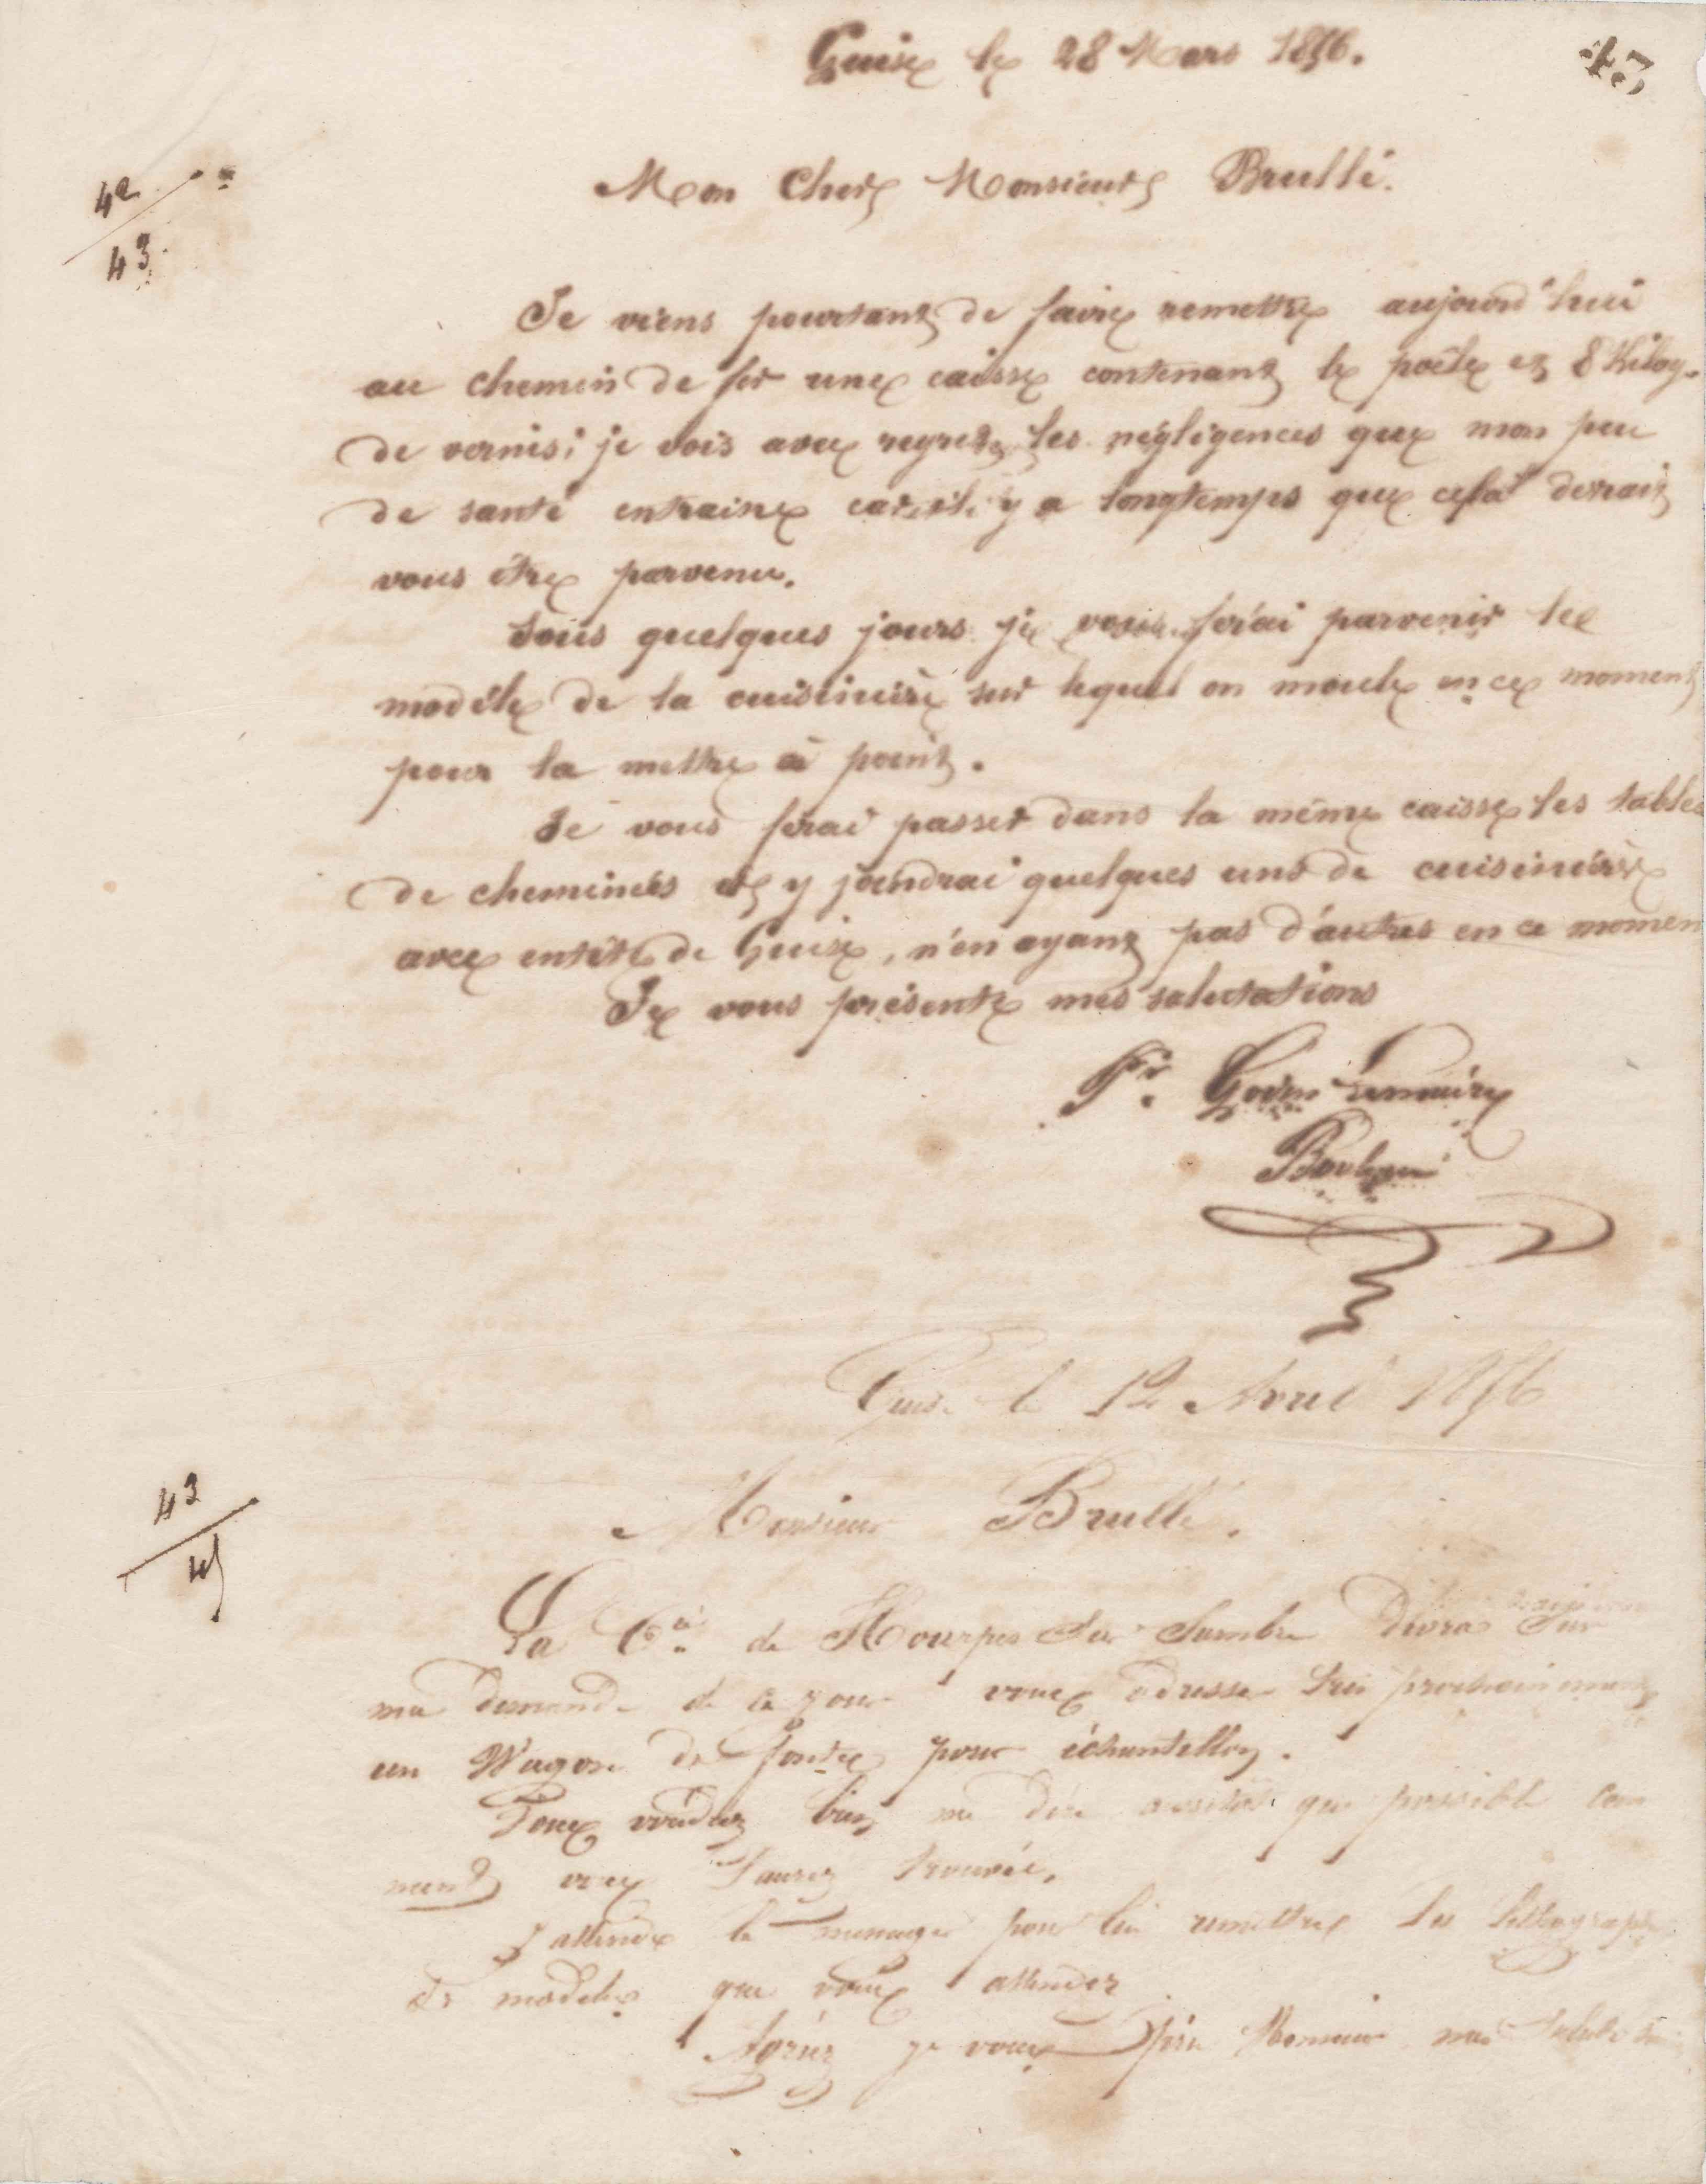 43
Guise le 28 Mars 1856.
42
43
Mon Cher Monsieur Brullé.
Je viens pourtant de faire remettre aujourd'hui
au chemin de fer une caisse contenant le poêle et 8 Kilog.
de vernis; je vois avec regret les négligences que mon peu
de santé entraine car il y a longtemps que cela devrait
vous être parvenu.
Sous quelques jours je vous ferai parvenir le
modèle de la cuisinière sur lequel on moule en ce moment
pour la mettre à point.
Je vous ferai passer dans la même caisse les tables
de cheminées et y joindrai quelques uns de cuisinière
avec entête de Guise, n'en ayant pas d'autres en ce momen
Je vous présente mes salutations
Pr. Godin Lemaire
Guise le 12 Avril 1856
43
45
Monsieur Brullé.
La Cie de Hourpes sur Sambre devra sur
ma demande de ce jour vous adresser très prochainement
un Wagon de fonte pour échantillon.
Vous voudrez bien me dire aussitôt que possible com
ment vous l'aurez trouvée.
J'attends le menage pour lui remettre les lithographi
de modèles que vous attendez
Agréez je vous prie Monsieur mes Salutations